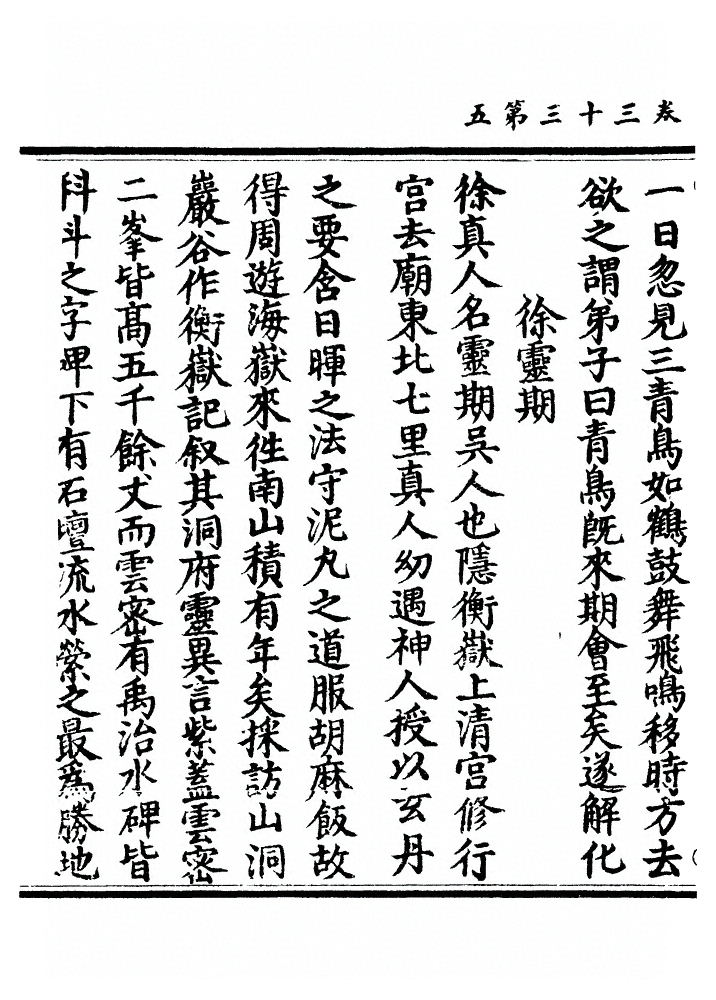 卷三十三第五
一日忽見三青鳥如鶴鼓舞飛鳴移時方去
欲之謂弟子曰青鳥既來期會至矣遂解化
徐靈期
徐真人名靈期吳人也隱衡嶽上清宮修行
宮去廟東北七里真人幼遇神人授以玄丹
之要含日暉之法守泥丸之道服胡麻飯故
得周遊海嶽來徃南山積有年矣採訪山洞
巖谷作衡嶽記叙其洞府靈異言紫蓋雲密
二峯皆高五千餘丈而雲密有禹治水碑皆
蚪斗之字碑下有石壇流水縈之最為勝地